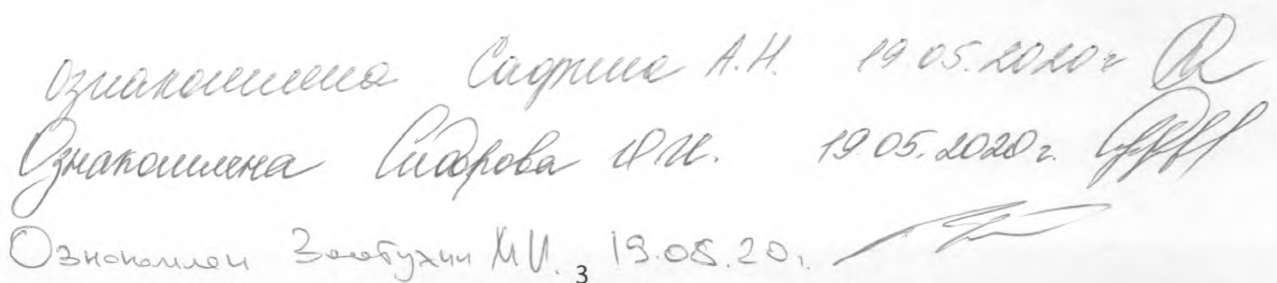 ознакомлена Сафина А.Н. 19.05.2020г
Ознакомлена Сидорова Ю.Н. 19.05.2020г.
Ознакомлен М.И. 19.05.20.
3